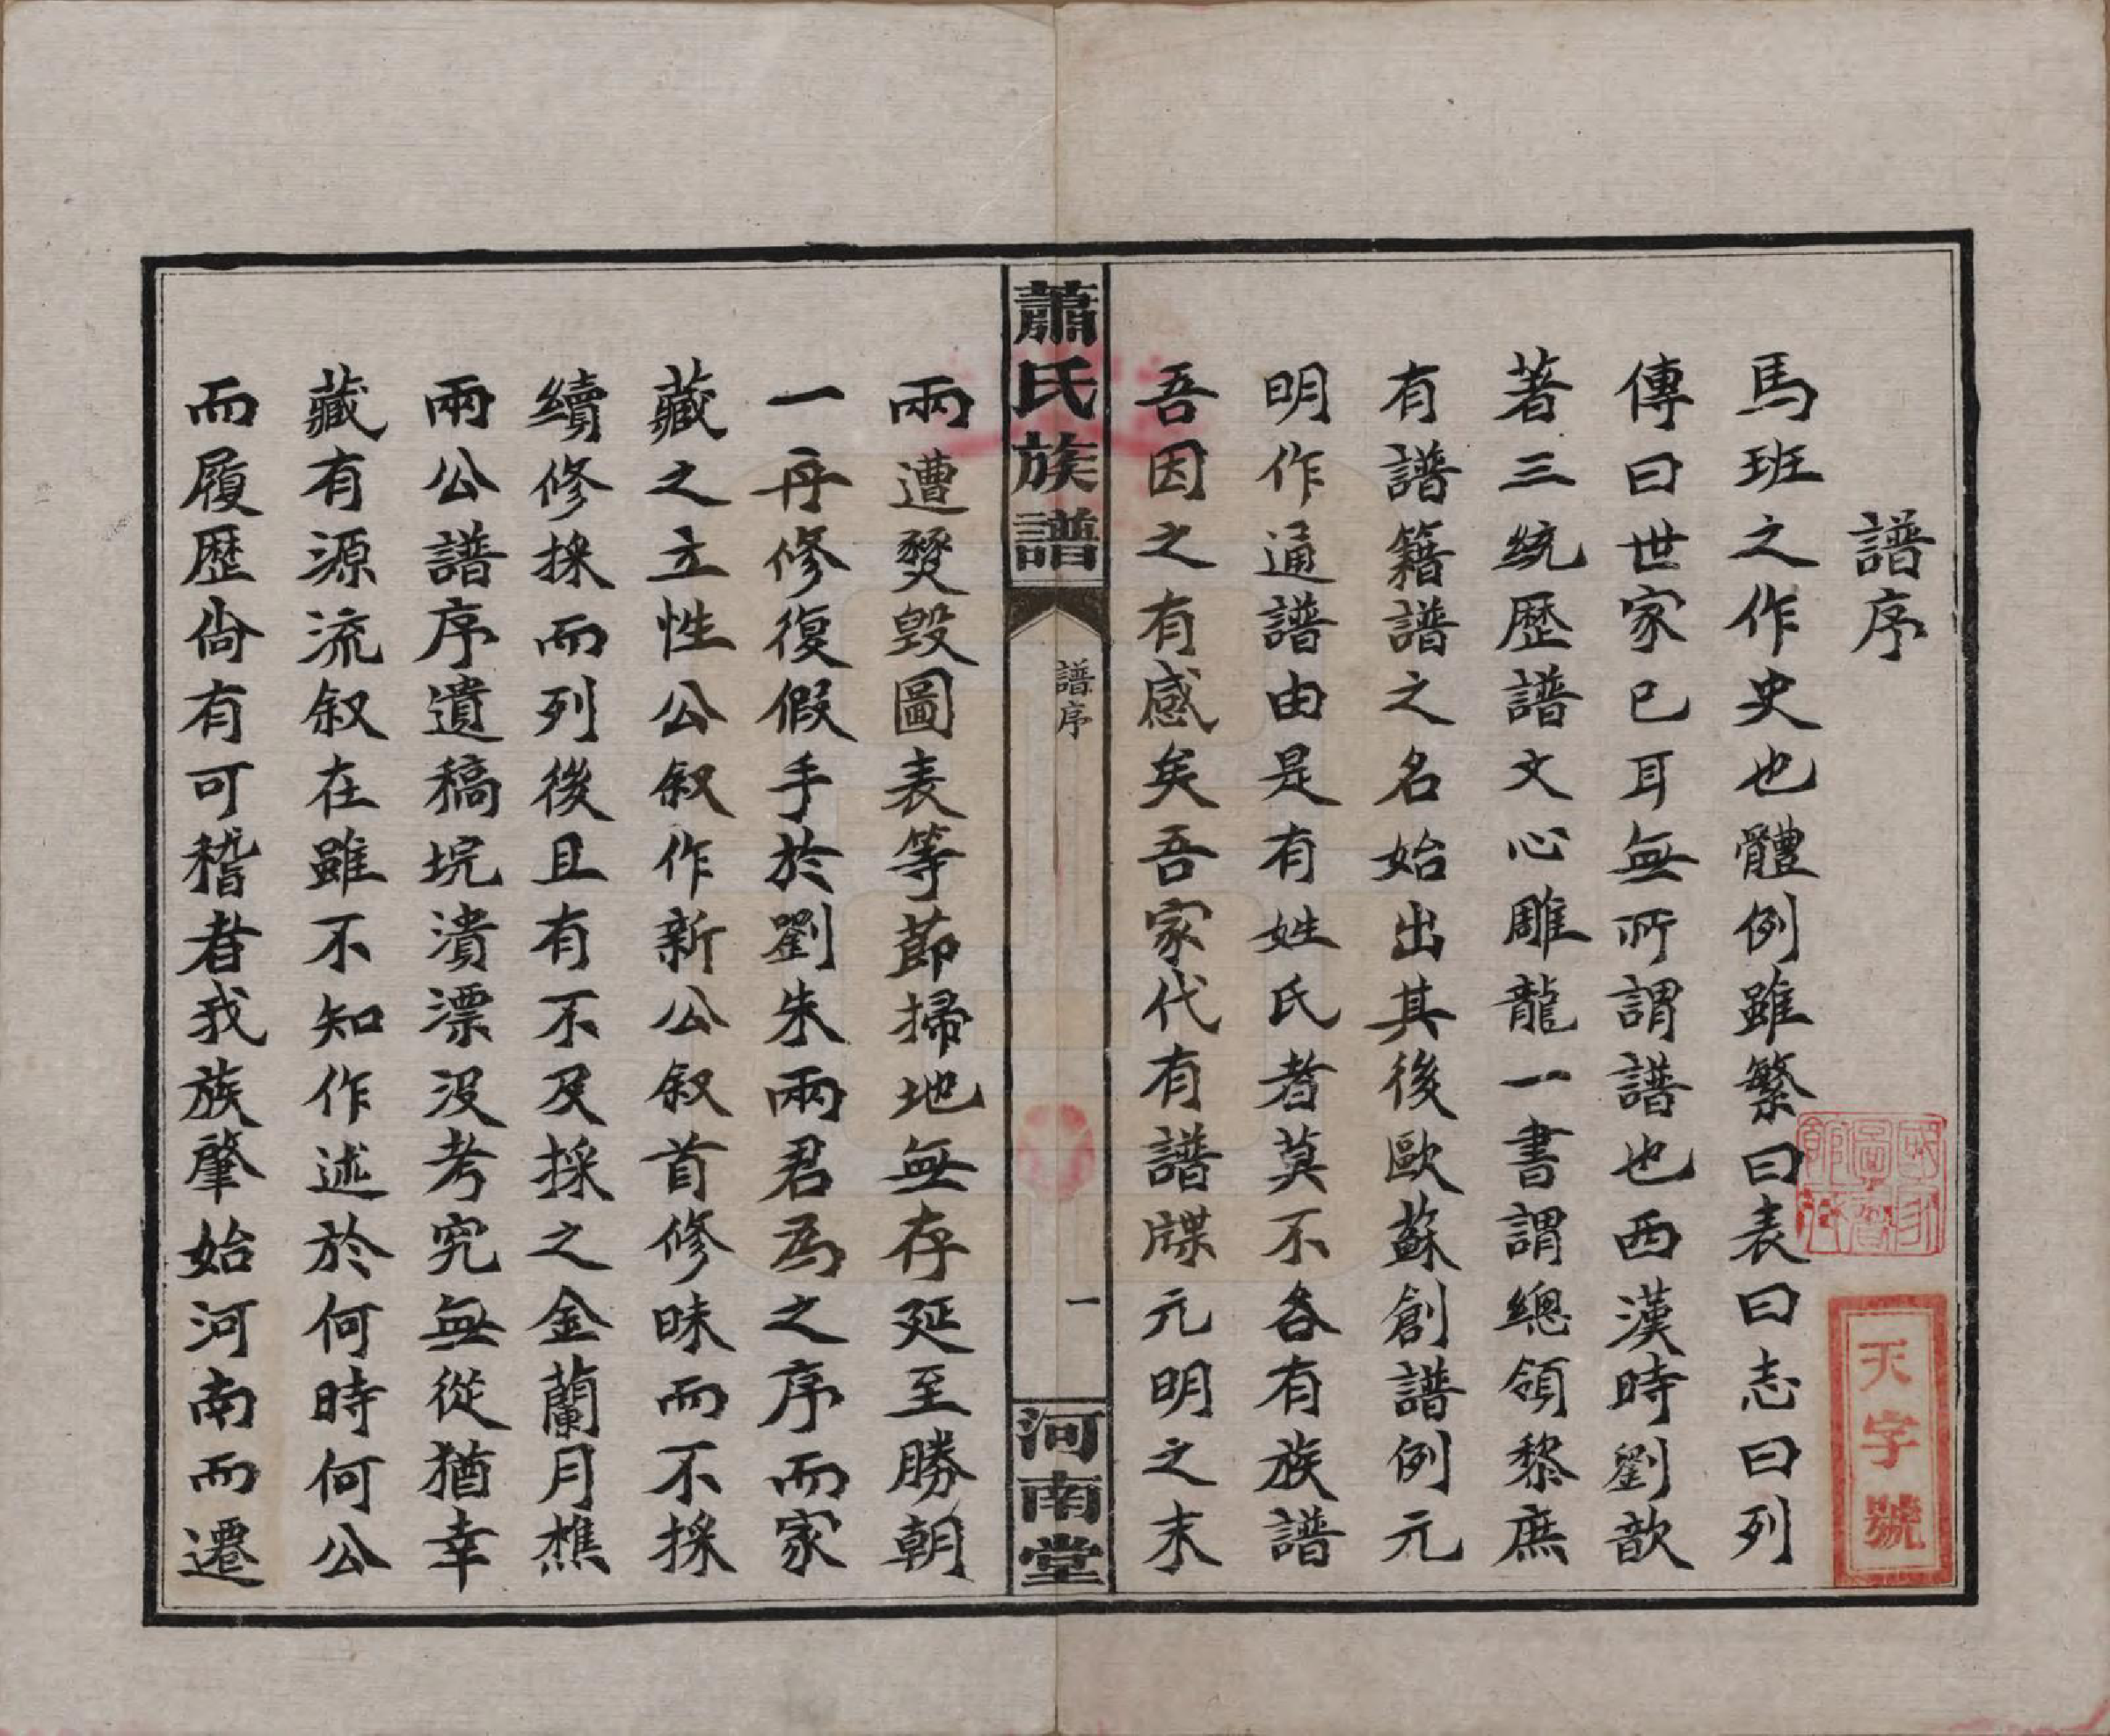 譜序
馬班之作史也體例雖繁曰表曰志曰列
傳曰世家已耳無所謂譜也西漢時劉歆
著三統歷譜文心雕龍一書謂總領黎庶
有譜籍譜之名始出其後歐蘇創譜例元
明作通譜由是有姓氏者莫不各有族譜
吾因之有感矣吾家代有譜牒元明之末
蕭氏族譜
譜序
一
河南堂
兩遭燹毀圖表等莭掃地無存延至勝朝
一再修復假手於劉朱兩君為之序而家
藏之立性公叙作新公叙首修昧而不採
續修採而列後且有不及採之金蘭月樵
兩公譜序遺稿垸潰漂沒考究無從猶幸
藏有源流叙在雖不知作述於何時何公
而履歷尙有可稽者我族肇始河南而遷
國家圖書館藏
天字號